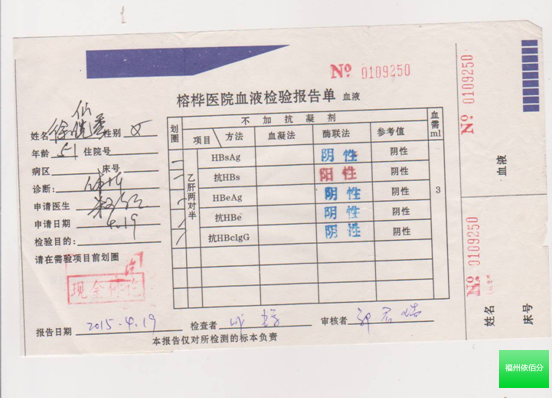 № 0109250
榕桦医院血液检验报告单 血液
姓名 性别 女
年龄 51 住院号
病区 床号
诊断：
申请医生
申请日期 4.19
检验目的：
请在需验项目前划圈
划圈 不加抗凝剂 血需ml
项目 方法 血凝法 酶联法 参考值
乙肝两对半
HBsAg 阴性 阴性
抗HBs 阳性 阴性
HBeAg 阴性 阴性
抗HBe 阴性 阴性
抗HBcIgG 阴性 阴性
3
现金
报告日期 2015.4.19 检查者 审核者
本报告仅对所检测的标本负责
№ 0109250
血液
№ 0109250
姓名
床号
福州依佰分